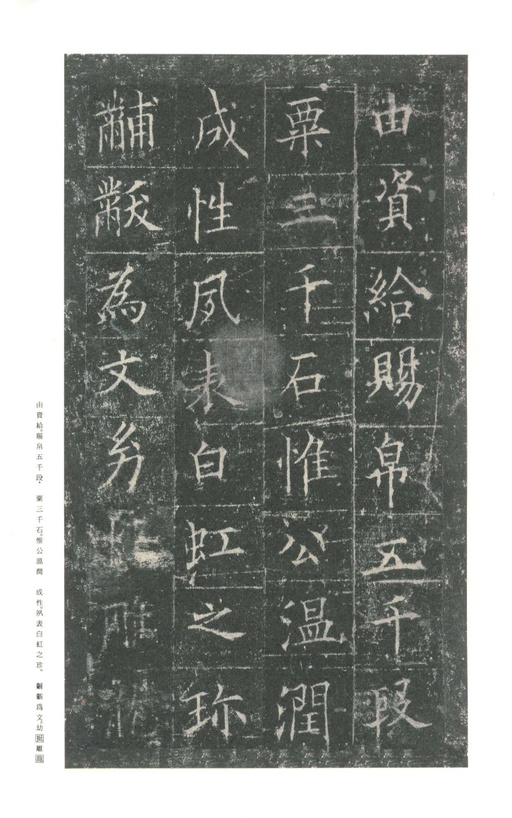 由資給賜帛五千段
粟三千石惟公温潤
成性夙表白虹之珎
黼黻為文幼
由資給賜帛五千段 粟三千石惟公温潤 成性夙表白虹之珎 黼黻為文幼 雕